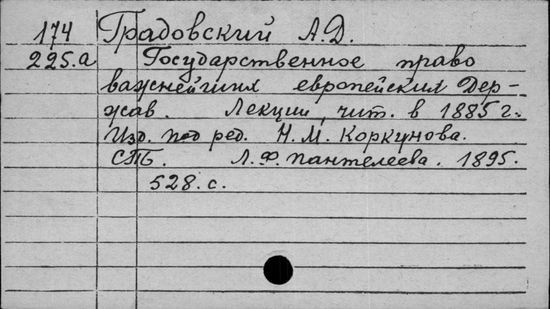 174 Градовский А.Д.
225.а Государственное право
важнейших европейских Дер-
жав. Лекции, чит. в 1885 г.
Изд. под ред. Н.М. Коркунова.
СПБ. Л.Ф. Пантелеева. 1895.
528. с.